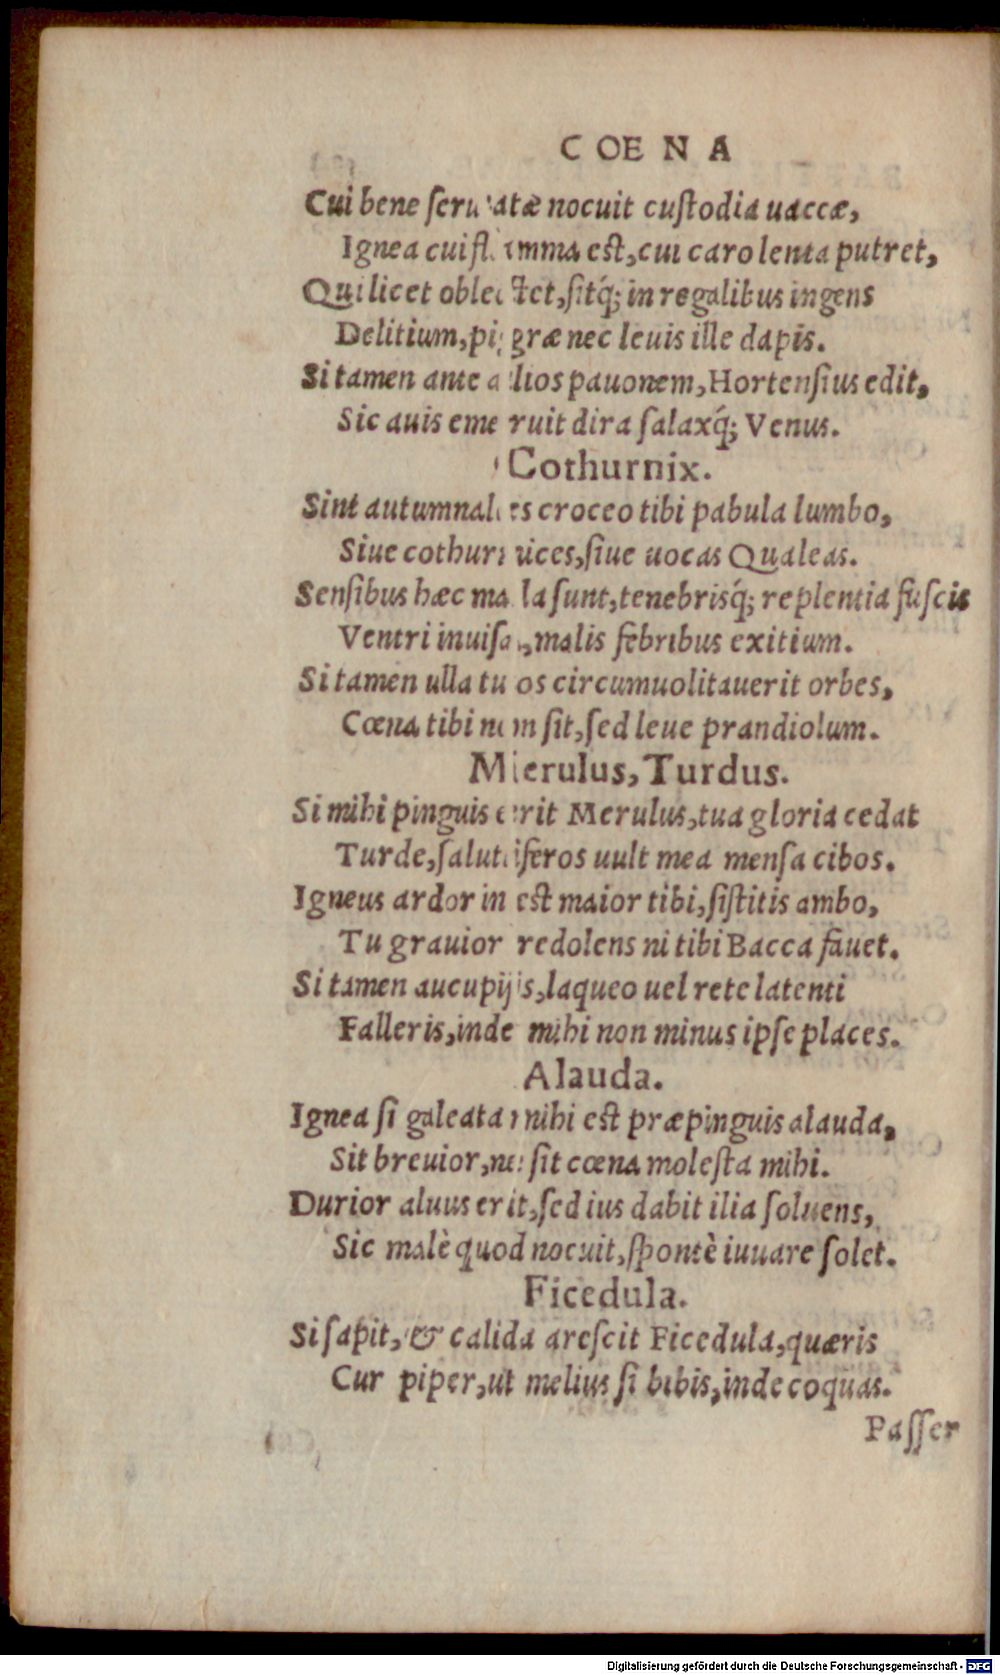 COENA
Cui bene seruatæ nocuit custodia uaccæ,
Ignea cui flamma est, cui caro lenta putret,
Qui licet oblectet, sitq́; in regalibus ingens
Delitium, pigræ nec leuis ille dapis.
Si tamen ante alios pauonem, Hortensius edit,
Sic auis emeruit dira salaxq́; Venus.
Cothurnix.
Sint autumnales croceo tibi pabula lumbo,
Siue cothurnices, siue uocas Qualeas.
Sensibus hæc mala sunt, tenebrisq́; replentia fuscis
Ventri inuisa, malis febribus exitium.
Si tamen ulla tuos circumuolitauerit orbes,
Cœna tibi non sit, sed leue prandiolum.
Merulus, Turdus.
Si mihi pinguis erit Merulus, tua gloria cedat
Turde, salutiferos uult mea mensa cibos.
Igneus ardor inest maior tibi, sistitis ambo,
Tu grauior redolens ni tibi Bacca fauet.
Si tamen aucupijs, laqueo uel rete latenti
Falleris, inde mihi non minus ipse places.
Alauda.
Ignea si galeata mihi est præpinguis alauda,
Sit breuior, ne sit cœna molesta mihi.
Durior aluus erit, sed ius dabit ilia soluens,
Sic malè quod nocuit, spontè iuuare solet.
Ficedula.
Si sapit, & calida arescit Ficedula, quæris
Cur piper, ut melius si bibis, inde coquas.
Passer
Digitalisierung gefördert durch die Deutsche Forschungsgemeinschaft - DFG